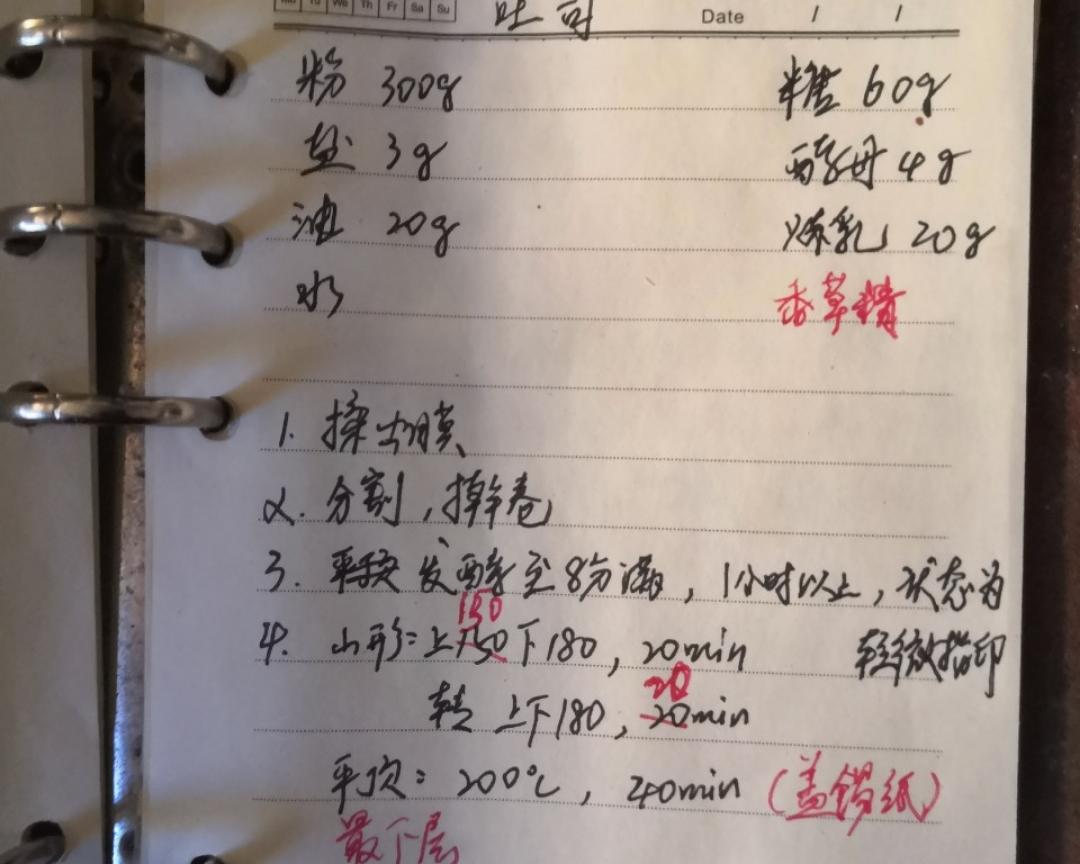 Mo Tu We Th Fr Sa Su 吐司 Date / /
粉 300g 糖 60g
盐 3g 酵母 4g
油 20g 炼乳 20g
水 香草精
1. 揉出膜
2. 分割，擀卷
3. 发酵至8分满，1小时以上，状态为
轻微指印
150
4. 山形：上150下180，20min
20
转 上下180，20min
平顶：200℃，40min（盖锡纸）
最下层